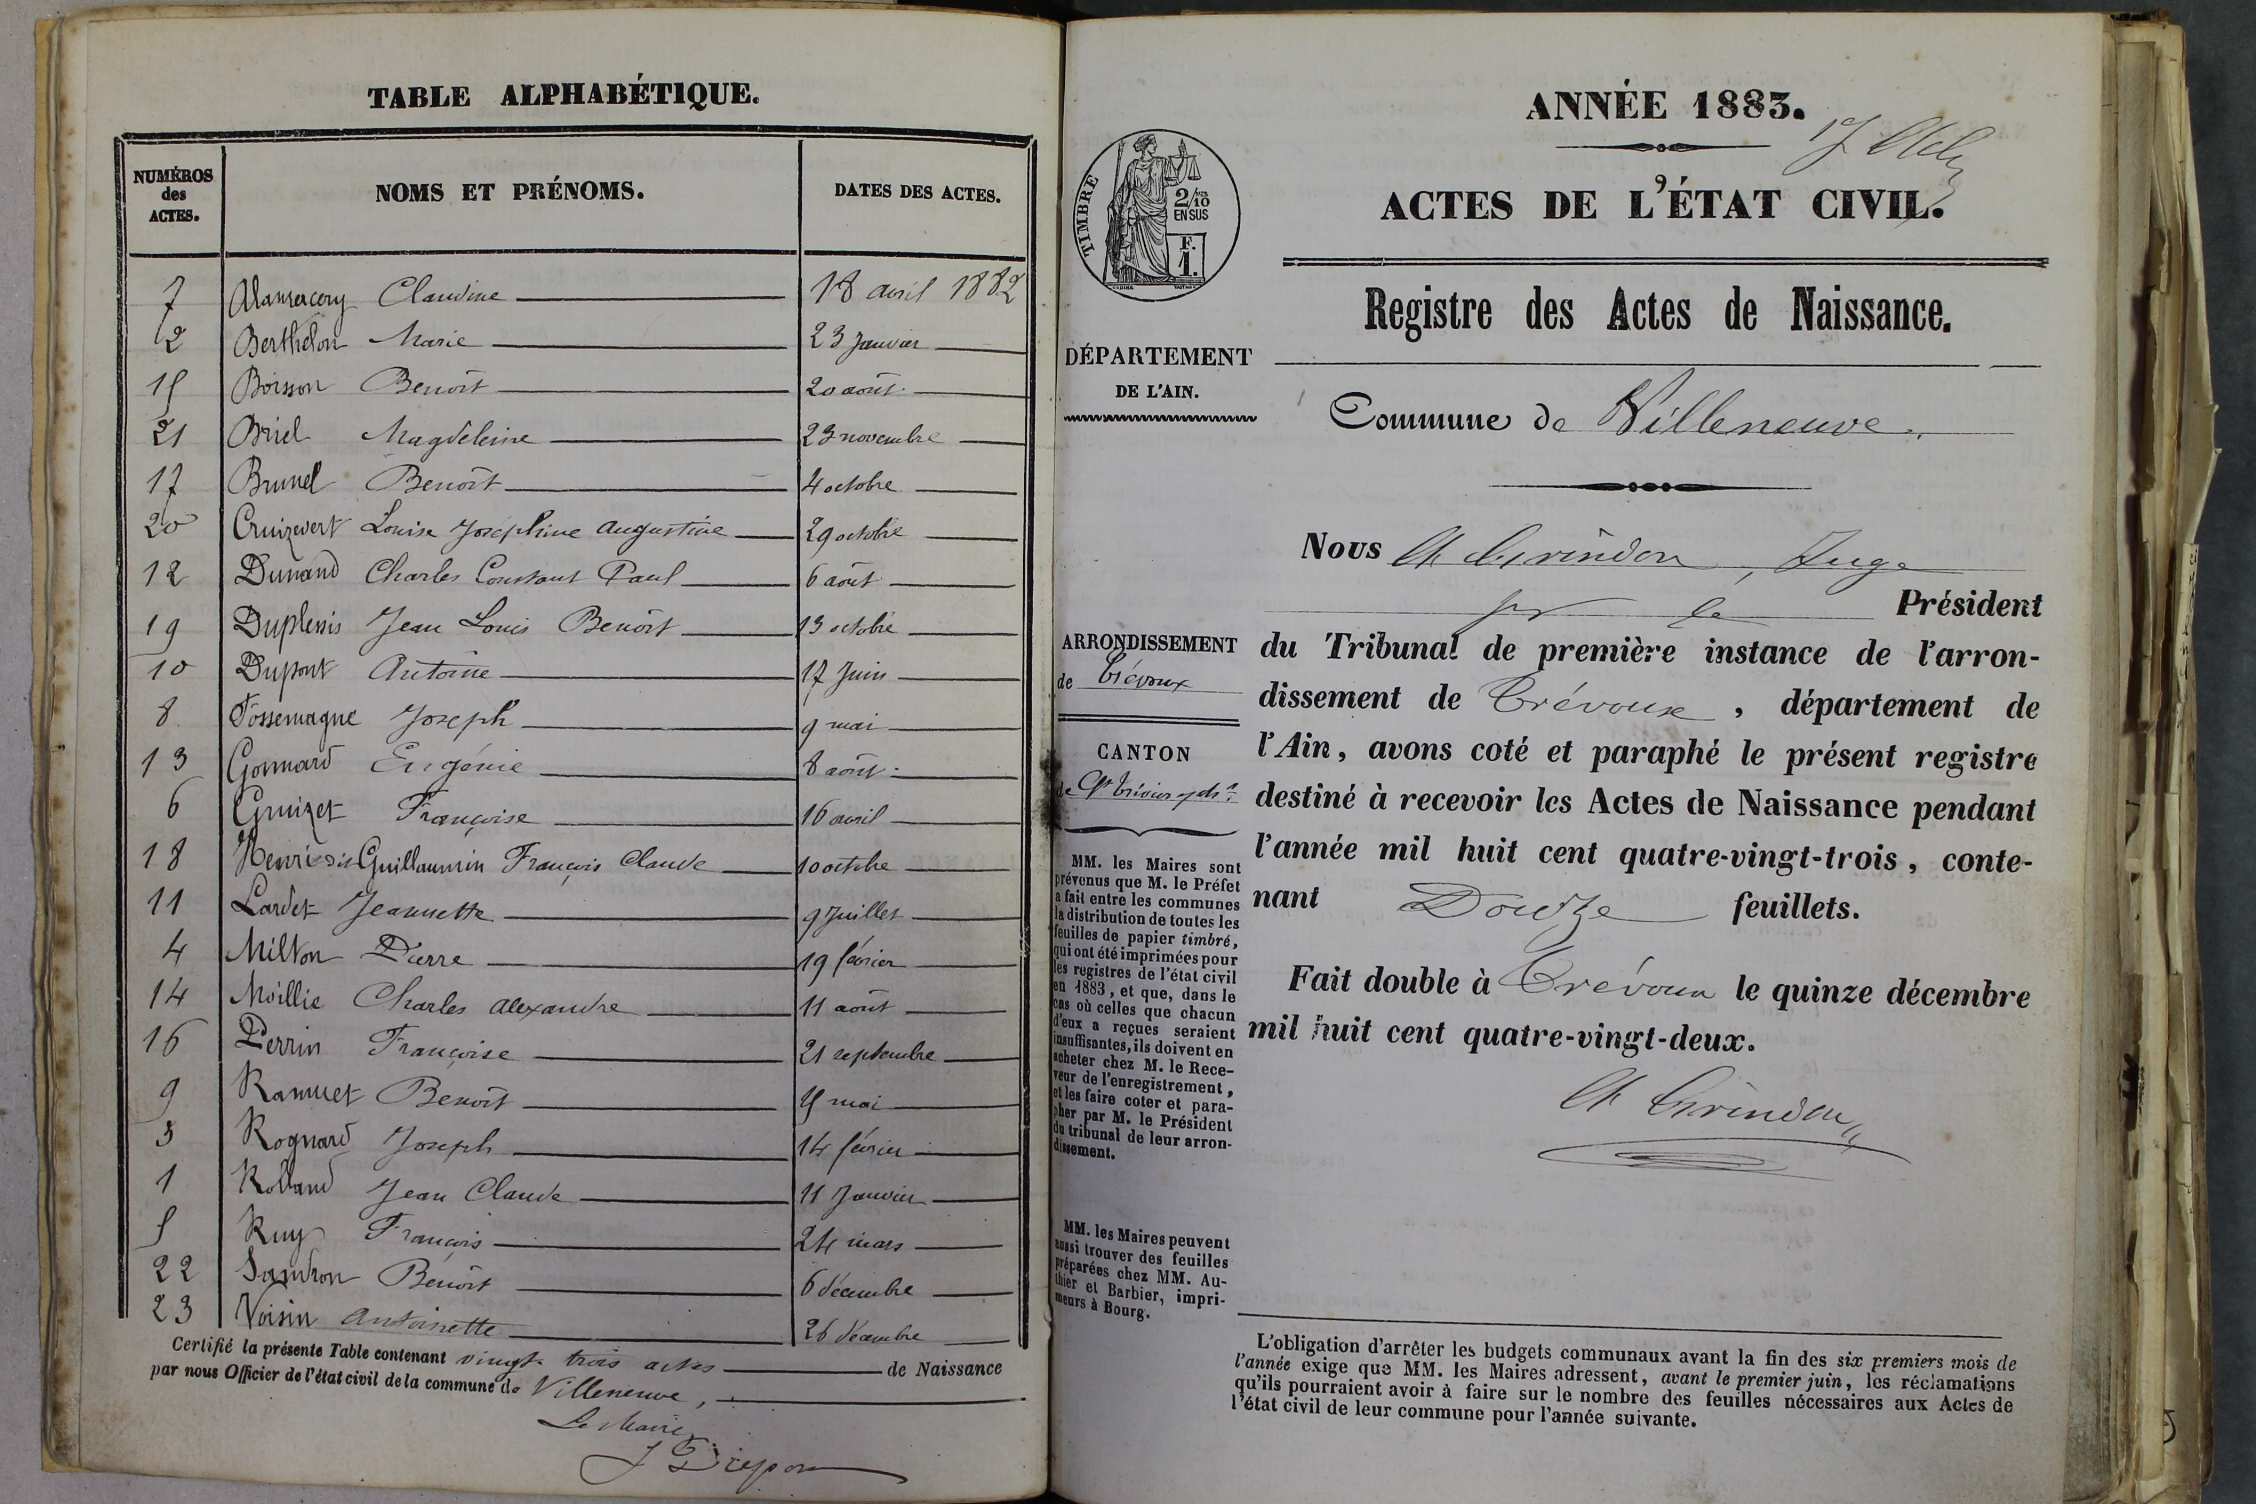 TABLE ALPHABÉTIQUE.
NUMÉROS des ACTES. NOMS ET PRÉNOMS. DATES DES ACTES.
7 Claudine 18 avril 1882
2 Berthelon Marie 23 Janvier
15 Boisson Benoît 20 août
21 Briel Magdeleine 23 novembre
17 Brunel Benoît 4 octobre
20 Cruizevert Louise Joséphine Augustine 29 octobre
12 Dunand Charles Constant Paul 6 août
19 Duplessis Jean Louis Benoît 13 octobre
10 Dupont Antoine 17 Juin
8 Fossemagne Joseph 9 mai
13 Gonnard Eugénie 8 août
6 Gruizet Françoise 16 avril
18 Henri dit Guillaumin François Claude 10 octobre
11 Lardet Jeannette 9 Juillet
4 Milton Pierre 19 février
14 Moillie Charles Alexandre 11 août
16 Perrin Françoise 21 septembre
9 Ramuet Benoît mai
3 Rognard Joseph 14 février
1 Rolland Jean Claude 11 Janvier
5 Ruy François 24 mars
22 Benoît 6 décembre
23 Voisin Antoinette 26 décembre
Certifié la présente Table contenant vingt trois actes de Naissance
par nous Officier de l'état civil de la commune de Villeneuve,
Le Maire
ANNÉE 1883.
ACTES DE L'ÉTAT CIVIL.
TIMBRE
2/10
EN SUS
F.
1.
Registre des Actes de Naissance.
DÉPARTEMENT
DE L'AIN.
Commune de Villeneuve.
Nous Grindon, Juge
pr le Président
ARRONDISSEMENT
de Trévoux
du Tribunal de première instance de l'arron-
dissement de Trévoux, département de
l'Ain, avons coté et paraphé le présent registre
destiné à recevoir les Actes de Naissance pendant
l'année mil huit cent quatre-vingt-trois, conte-
nant Douze feuillets.
CANTON
de St Trivier
MM. les Maires sont
prévenus que M. le Préfet
a fait entre les communes
la distribution de toutes les
feuilles de papier timbré,
qui ont été imprimées pour
les registres de l'état civil
en 1883, et que, dans le
cas où celles que chacun
d'eux a reçues seraient
insuffisantes, ils doivent en
acheter chez M. le Rece-
veur de l'enregistrement,
et les faire coter et para-
pher par M. le Président
du tribunal de leur arron-
dissement.
Fait double à Trévoux le quinze décembre
mil huit cent quatre-vingt-deux.
Grindon
MM. les Maires peuvent
aussi trouver des feuilles
préparées chez MM. Au-
thier et Barbier, impri-
meurs à Bourg.
L'obligation d'arrêter les budgets communaux avant la fin des six premiers mois de
l'année exige que MM. les Maires adressent, avant le premier juin, les réclamations
qu'ils pourraient avoir à faire sur le nombre des feuilles nécessaires aux Actes de
l'état civil de leur commune pour l'année suivante.